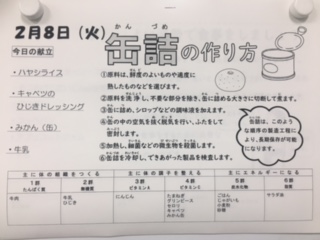 2月8日（火）
かん づめ
缶詰の作り方
今日の献立
・ハヤシライス
・キャベツの
ひじきドレッシング
・みかん（缶）
・牛乳
①原料は、鮮度のよいものや適度に
熟したものなどを選びます。
②原料を洗浄し、不要な部分を除き、缶に詰める大きさに切断して煮ます。
③缶に詰め、シロップなどの調味液を加えます。
④缶の中の空気を抜く脱気を行い、ふたをして
密封します。
⑤加熱し、細菌などの微生物を殺菌します。
⑥缶詰を冷却し、できあがった製品を検査します。
缶詰は、このよう
な順序の製造工程によ
り、長期保存が可能に
なります。
主に体の組織をつくる
主に体の調子を整える
主にエネルギーになる
1群
たんぱく質
2群
無機質
3群
ビタミンA
4群
ビタミンC
5群
炭水化物
6群
脂質
牛肉
牛乳
ひじき
にんじん
たまねぎ
グリンピース
セロリ
キャベツ
みかん缶
ごはん
じゃがいも
小麦粉
砂糖
サラダ油